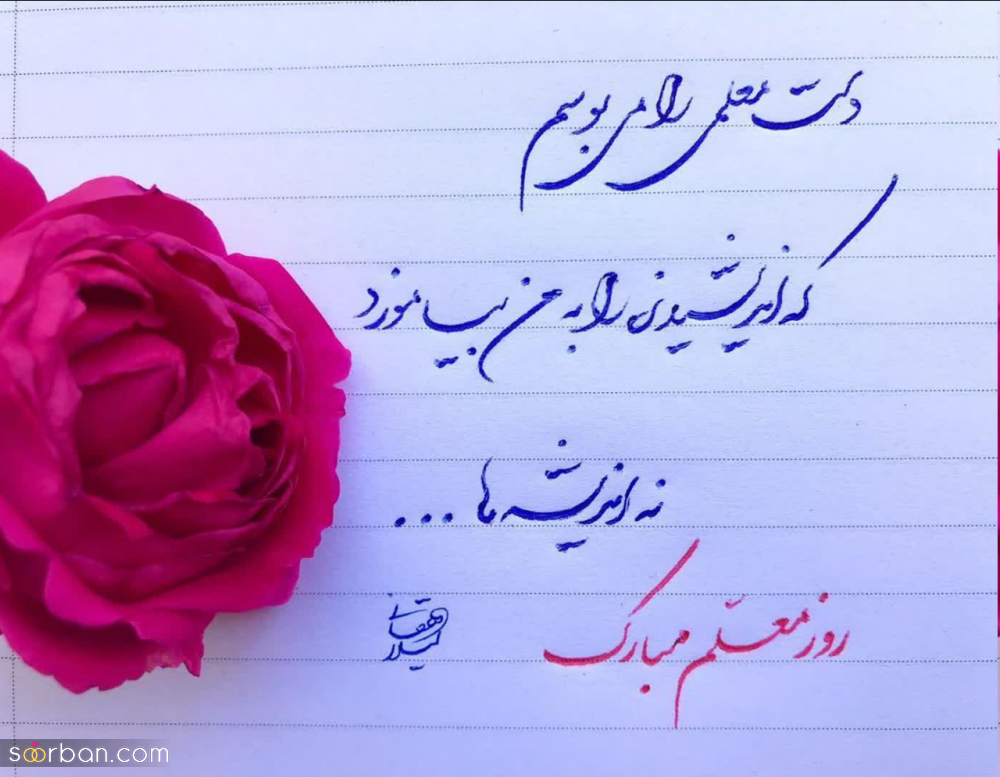 دست معلمی را می بوسم
که اندیشیدن را به من بیاموزد
نه اندیشه ها...
روز معلم مبارک
soorban.com